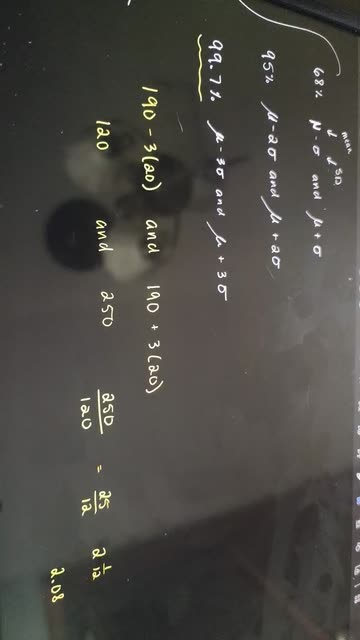 mean
SD
68% μ - σ and μ + σ
95% μ - 2σ and μ + 2σ
99.7% μ - 3σ and μ + 3σ
190 - 3(20) and 190 + 3(20)
120 and 250
250/120 = 25/12 2 1/12
2.08